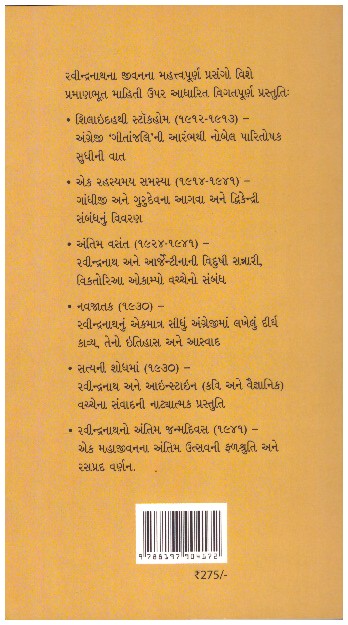 રવીન્દ્રનાથના જીવનના મહત્ત્વપૂર્ણ પ્રસંગો વિશે
પ્રમાણભૂત માહિતી ઉપર આધારિત વિગતપૂર્ણ પ્રસ્તુતિઃ
• શિલાઇદહથી સ્ટૉકહોમ (૧૯૧૨-૧૯૧૩) –
અંગ્રેજી ‘ગીતાંજલિ’ની આરંભથી નોબેલ પારિતોષક
સુધીની વાત
• એક રહસ્યમય સમસ્યા (૧૯૧૪-૧૯૪૧) –
ગાંધીજી અને ગુરુદેવના આગવા અને દ્વિકેન્દ્રી
સંબંધનું વિવરણ
• અંતિમ વસંત (૧૯૨૪-૧૯૪૧) –
રવીન્દ્રનાથ અને આર્જેન્ટીનાની વિદુષી સન્નારી,
વિક્તોરિઆ ઓકામ્પો વચ્ચેનો સંબંધ
• નવજાતક (૧૯૩૦) –
રવીન્દ્રનાથનું એકમાત્ર સીધું અંગ્રેજીમાં લખેલું દીર્ઘ
કાવ્ય, તેનો ઇતિહાસ અને આસ્વાદ
• સત્યની શોધમાં (૧૯૩૦) –
રવીન્દ્રનાથ અને આઇન્સ્ટાઇન (કવિ અને વૈજ્ઞાનિક)
વચ્ચેના સંવાદની નાટ્યાત્મક પ્રસ્તુતિ
• રવીન્દ્રનાથનો અંતિમ જન્મદિવસ (૧૯૪૧) –
એક મહાજીવનના અંતિમ ઉત્સવની ફળશ્રુતિ અને
રસપ્રદ વર્ણન.
₹275/-